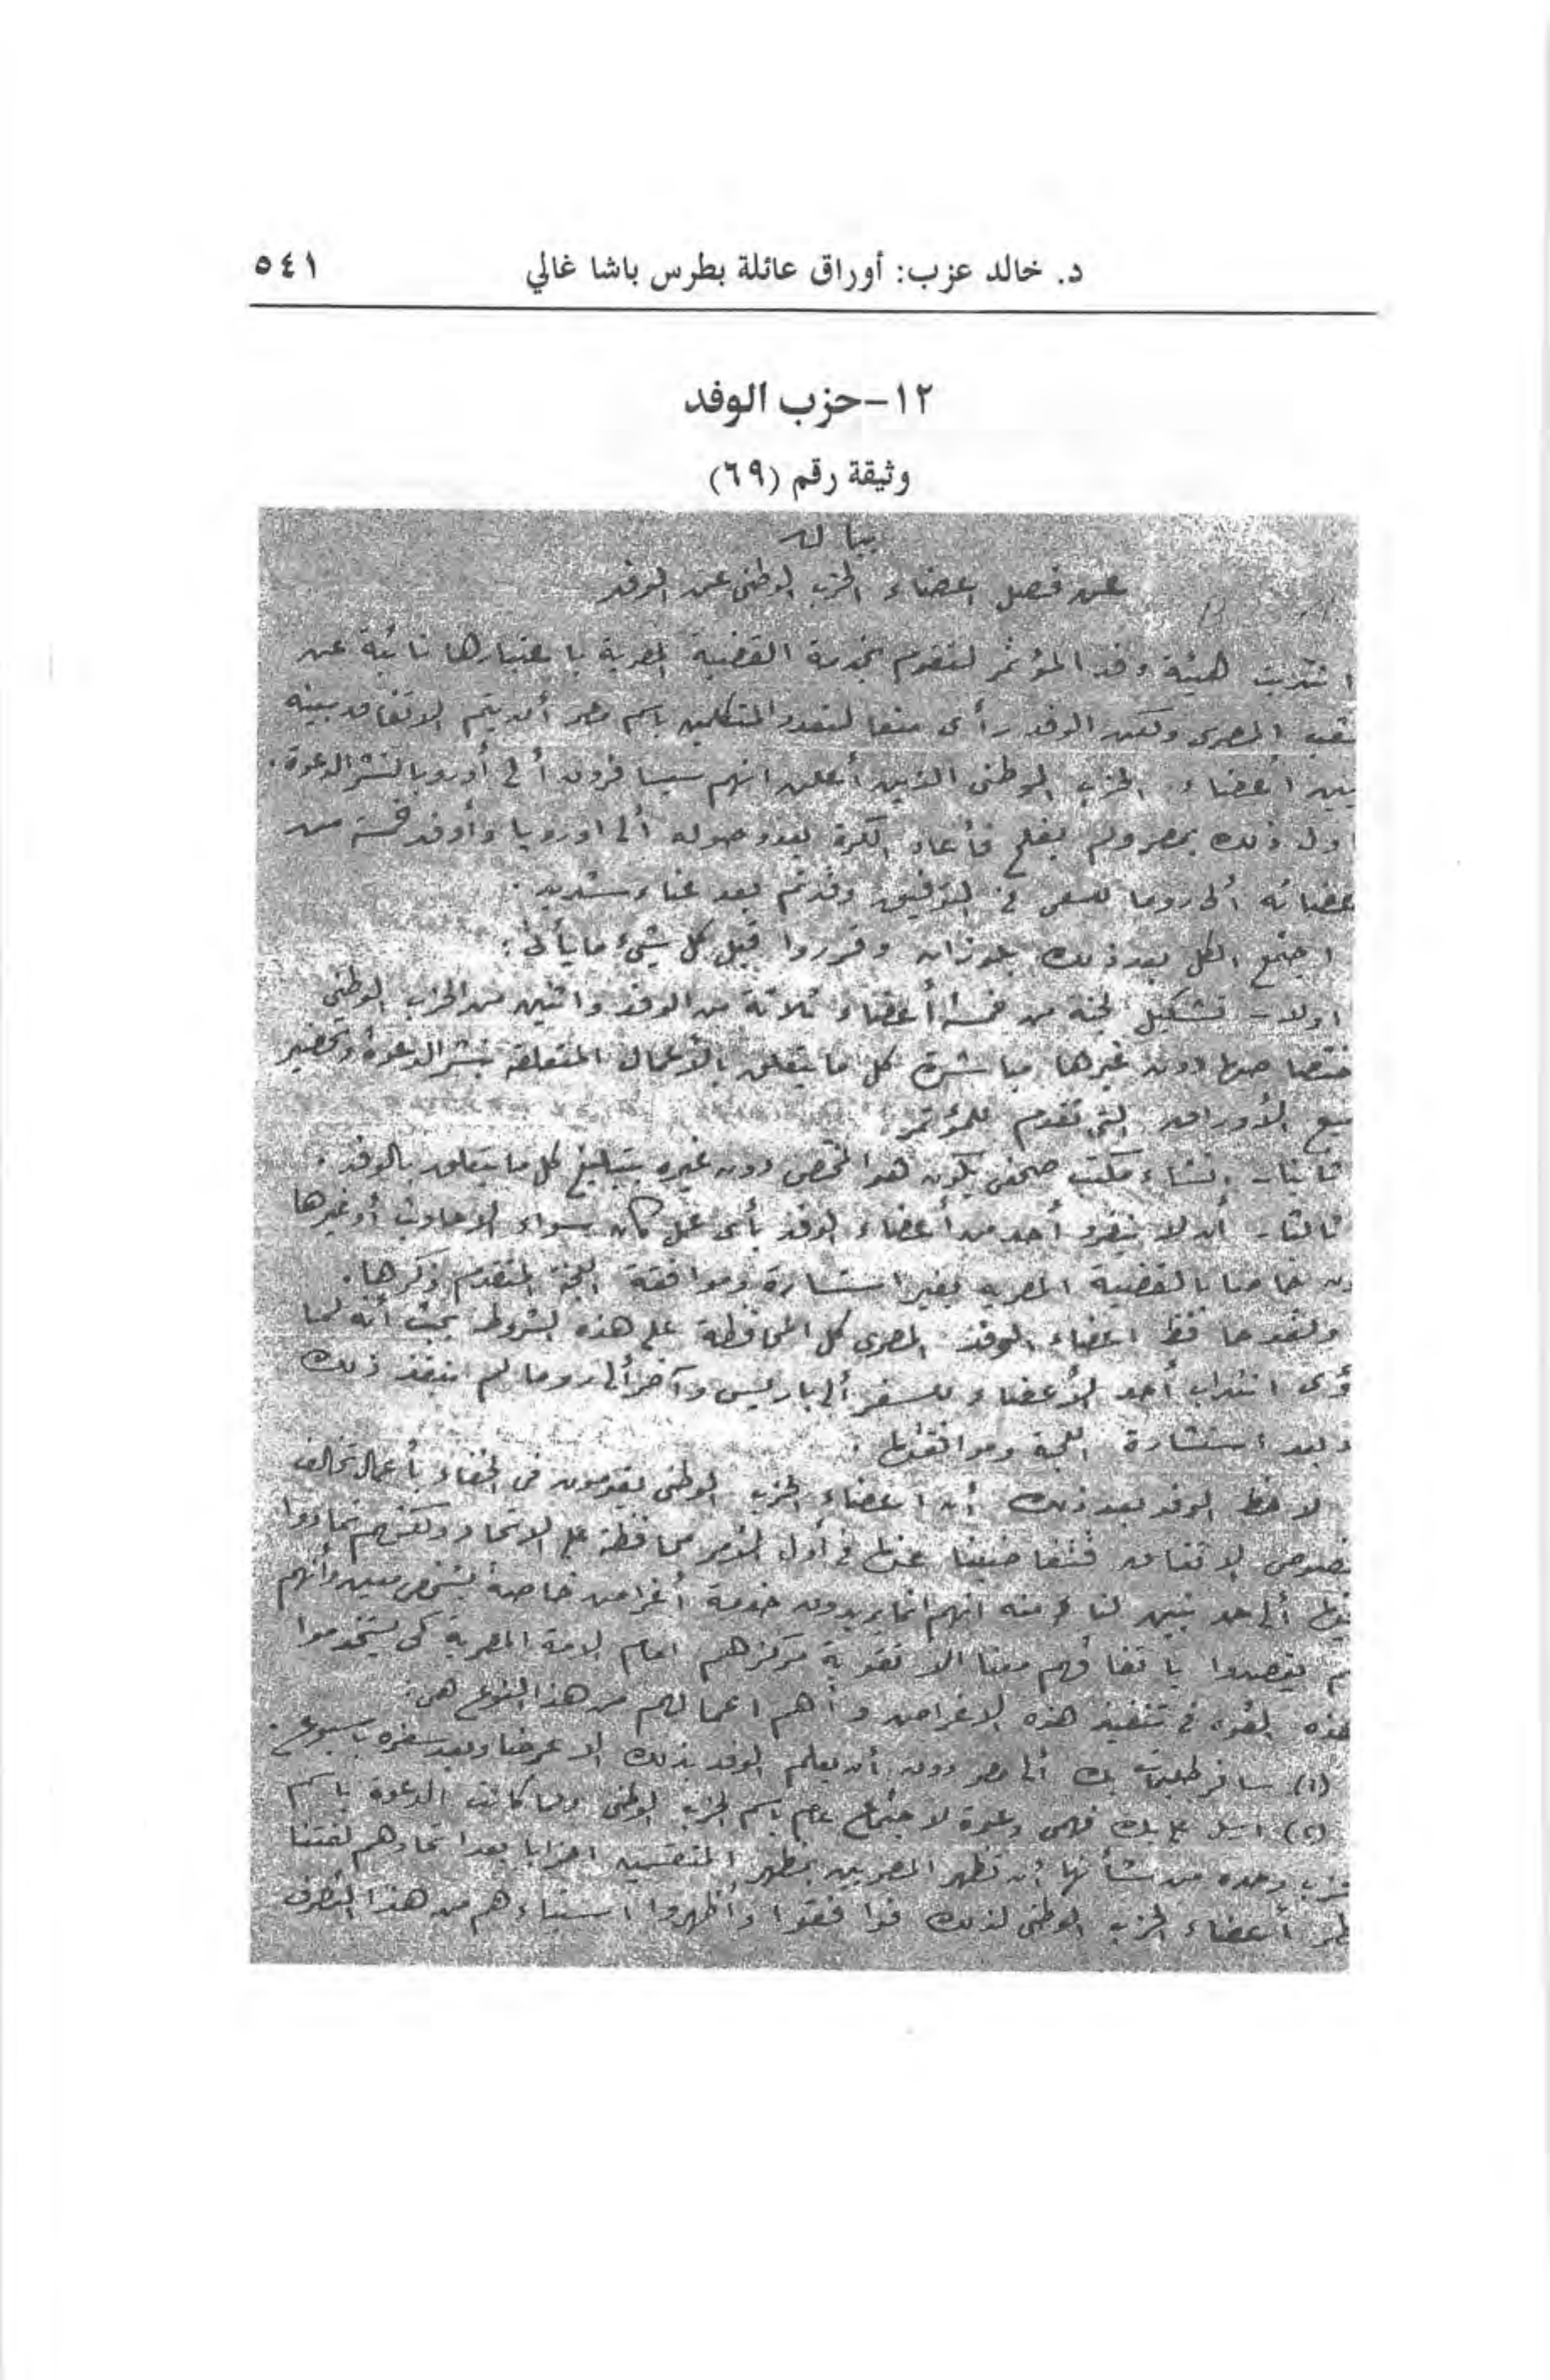 د. خالد عزب: أوراق عائلة بطرس باشا غالي ٥٤١
١٢-حزب الوفد
وثيقة رقم (٦٩)
بيان
عن فصل اعضاء الحزب الوطنى عن الوفد
انتدبت هيئة وفد المؤتمر لتقوم بخدمة القضية المصرية باعتبارها نائبة عن
شعب المصرى ولكن الوفد رأى منعا لتعدد المتكلمين باسم مصر أن يتم الاتفاق بينه
بين أعضاء الحزب الوطنى الذين أعلن انهم سيسافرون ألى أوروبا لنشر الدعوة.
اول ذلك بمصر ولم يفلح فأعاد الكرة بعد وصوله ألى اوروبا وأوفد خمسة من
عضائه ألى روما للسعى فى التوفيق وقد تم بعد عناء شديد.
اجتمع الكل بعد ذلك بلوزان وقرروا قبل كل شيئ ما يأتى:
اولا - تشكيل لجنة من خمسة أعضاء ثلاثة من الوفد واثنين من الحزب الوطنى
ختصاصها دون غيرها مباشرة كل ما يتعلق بالأعمال المتعلقة بنشر الدعوة وتحضير
ميع الأوراق التى تقدم للمؤتمر.
ثانيا - انشاء مكتب صحفى يكون هو المختص دون غيره بتبليغ كل ما يتعلق بالوفد.
ثالثا - أن لا ينفرد أحد من أعضاء الوفد بأى عمل كان سواء الاحاديث أو غيرها
ون خاصا بالقضية المصرية بغير استشارة وموافقة اللجنة المتقدم ذكرها.
ولقد حافظ اعضاء الوفد المصرى كل المحافظة على هذه الشروط بحيث أنه لما
ؤى انتداب أحد الأعضاء للسفر ألى باريس وآخر ألى روما لم ينفذ ذلك
بعد استشارة اللجنة وموافقتها.
لاحظ الوفد بعد ذلك أن اعضاء الحزب الوطنى يقومون فى الخفاء بأعمال تخالف
نصوص الاتفاق فتغاضينا عنها فى أول الأمر محافظة على الاتحاد ولكنهم تمادوا
ألى حد تبين لنا منه انهم انما يريدون خدمة أغراض خاصة لشخص معين وأنهم
م يقصدوا باتفاقهم معنا الا تقوية مركزهم امام الامة المصرية كى يستخدموا
هذه القوه فى تنفيذ هذه الاغراض وأهم اعمالهم من هذا النوع هى:
(١) سافر بك ألى مصر دون أن يعلم الوفد بذلك الا عرضا وبعد سفره باسبوع.
(٢) ارسل على بك فهمى دعوة لاجتماع عام باسم الحزب الوطنى ولما كانت الدعوة باسم
حزب وحده من شأنها أن تظهر المصريين بمظهر المنقسمين احزابا بعد اتحادهم لفتنا
ظر أعضاء الحزب الوطنى لذلك فوافقوا وأظهروا استياءهم من هذا التصرف